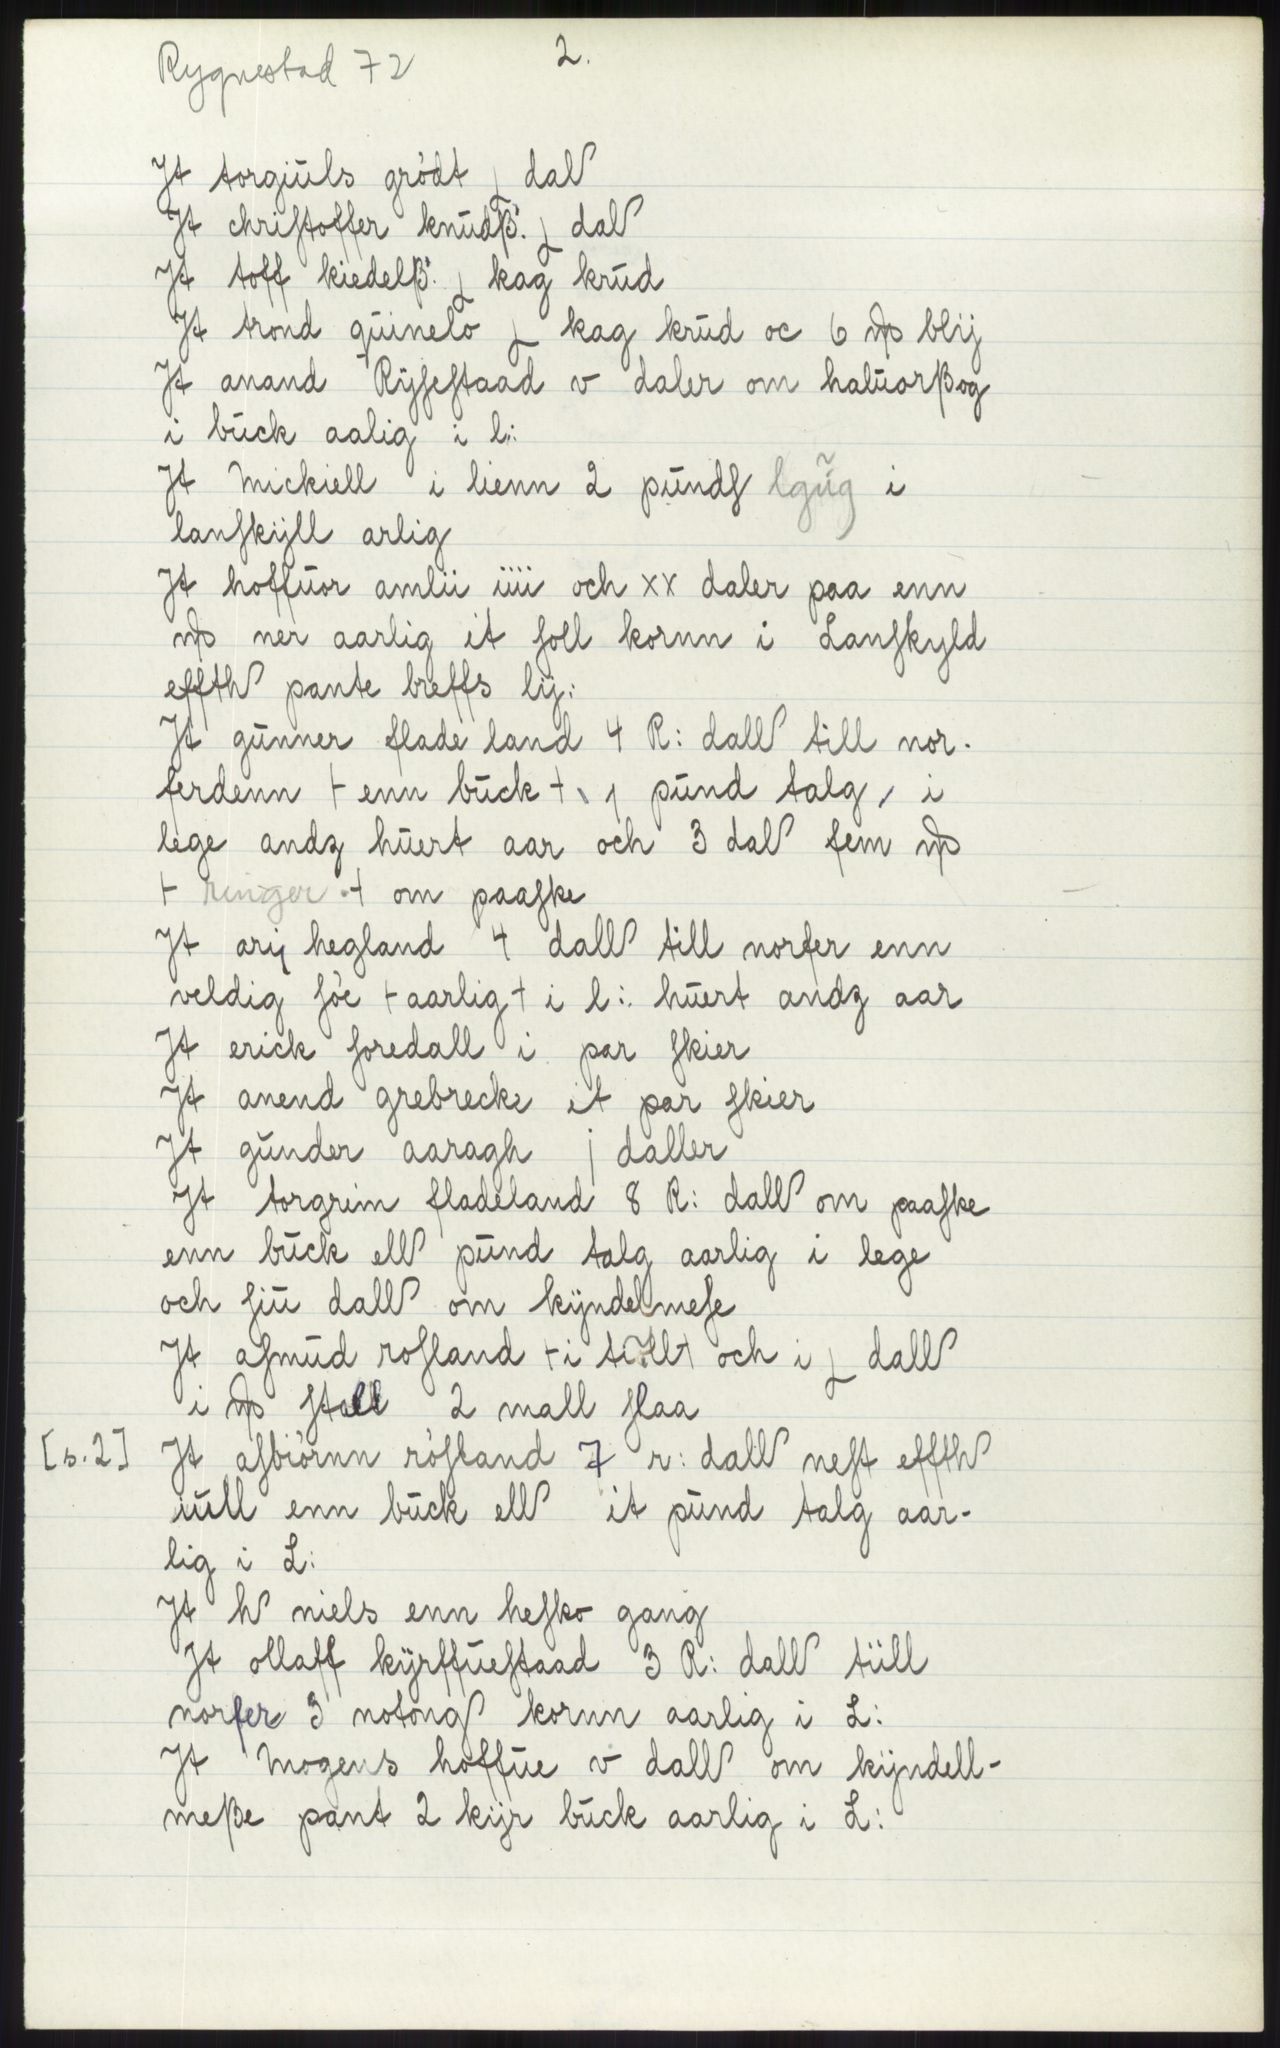 Rygnestad 72
2.
Jt torgiuls grødt ½ dal
Jt chriſtoffer knūdβ. ½ dal
Jt toff kiedelβ. ½ kag krūd
Jt trond qūinelo ½ kag krūd oc 6 mþ blij
Jt anand Rÿſeſtaad v daler om halūorβog
i būck aalig i l:
Jt Mickiell i lienn 2 pūndſ lgũg i
lanſkÿll arlig
Jt hoffūor amlii iiii och xx daler paa enn
mþ ner aarlig it ſoll kornn i Lanſkyld
effth pante breffs lÿ:
Jt gūnner flade land 4 R: dall till nor-
ferdenn + enn būck + \ 1 pūnd talg, i
lege andz hūert aar och 3 dal fem mþ
+ ringer + om paaſke
Jt arij hegland 4 dall till norfer enn
veldig ſøe + aarlig + i l: hūert andz aar
Jt erick ſoredall i par ſkier
Jt anend grebrecke it par ſkier
Jt gūnder aaragh j daller
Jt torgrim fladeland 8 R: dall om paaſke
enn būck ell pūnd talg aarlig i lege
och ſiū dall om kÿndelmeſe
Jt aſmūd roſland + i till + och i ½ dall
i mþ ſtall 2 mall ſlaa
[s.2] Jt aſbiørnn røſland 7 r: dall neſt effth
iūll enn būck ell it pūnd talg aar-
lig i L:
Jt h niels enn heſko gang
Jt ollaff kÿrffūeſtaad 3 R: dall tiill
norfer 3 notong kornn aarlig i L:
Jt Mogens hoffūe v dall om kÿndell-
meβe pant 2 kÿr būck aarlig i L: